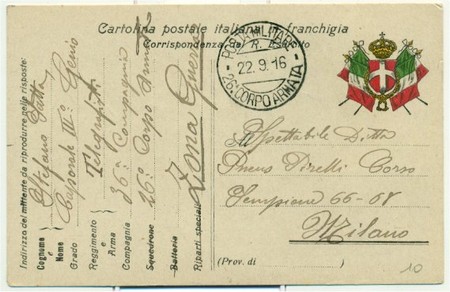 Cartolina postale italiana in franchigia
Corrispondenza del R. Esercito
POSTA MILITARE
22.9.16
26. CORPO ARMATA
Indirizzo del mittente da riprodurre nelle risposte:
Cognome e Nome
Stefano
Grado
Caporale III° Genio
Reggimento e Arma
Telegrafisti
Compagnia
36ª Compagnia
Squadrone
26° Corpo Armata
Batteria
Riparti speciali
Zona Guerra
Spettabile Ditta
Pneus Pirelli Corso
Sempione 66-68
Milano
(Prov. di )
10